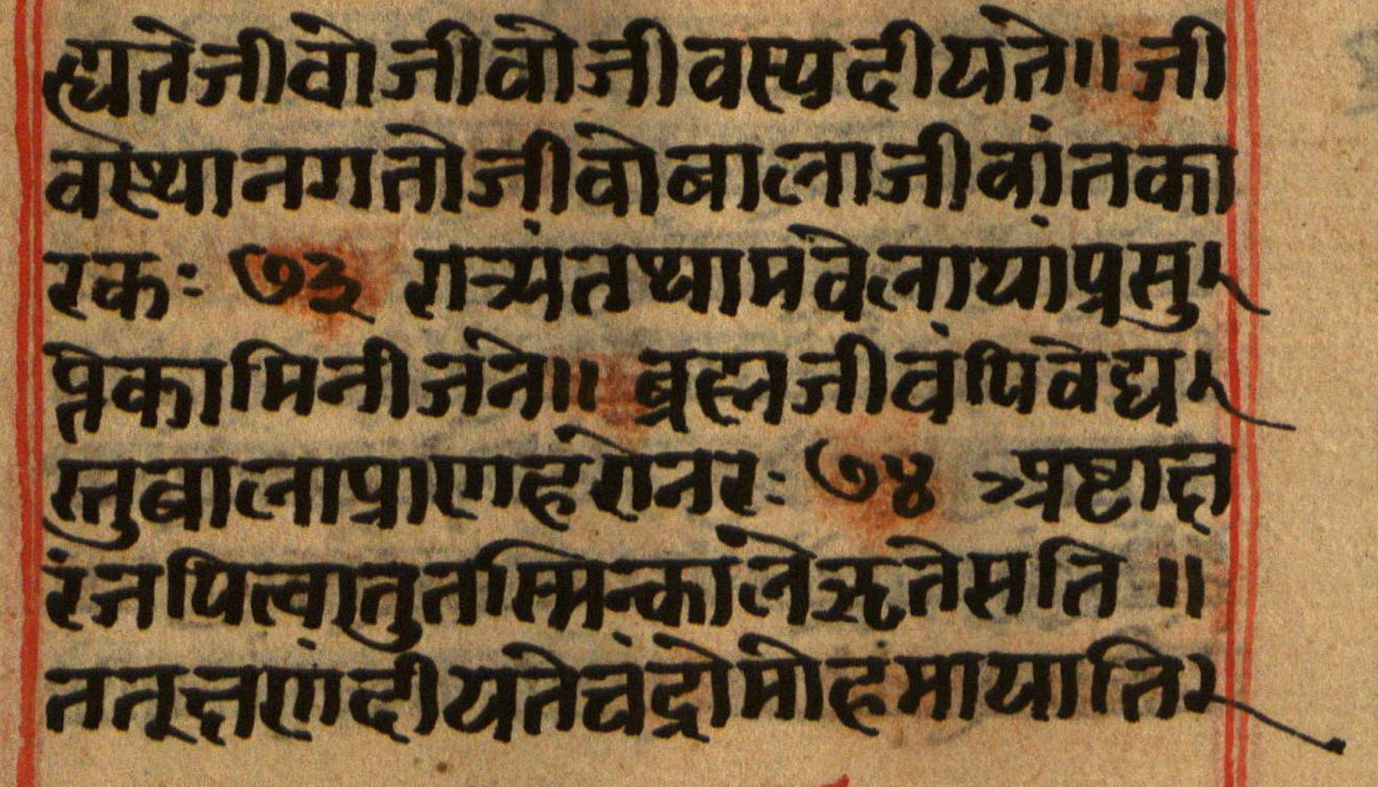 ह्यतेजीवोजीवोजीवस्यदीयते॥जी
वस्थानगतोजीवोबालाजीवांतका
रकः ७३ रात्र्यंतयामवेलायांप्रसु
प्तेकामिनीजने॥ब्रह्मजीवंपिवेद्य
स्तुबालाप्राणहरोनरः ७४ अष्टाक्ष
रंजपित्वातुतस्मिन्कालेऋतेसति॥
तत्क्षणंदीयतेचंद्रोमोहमायाति